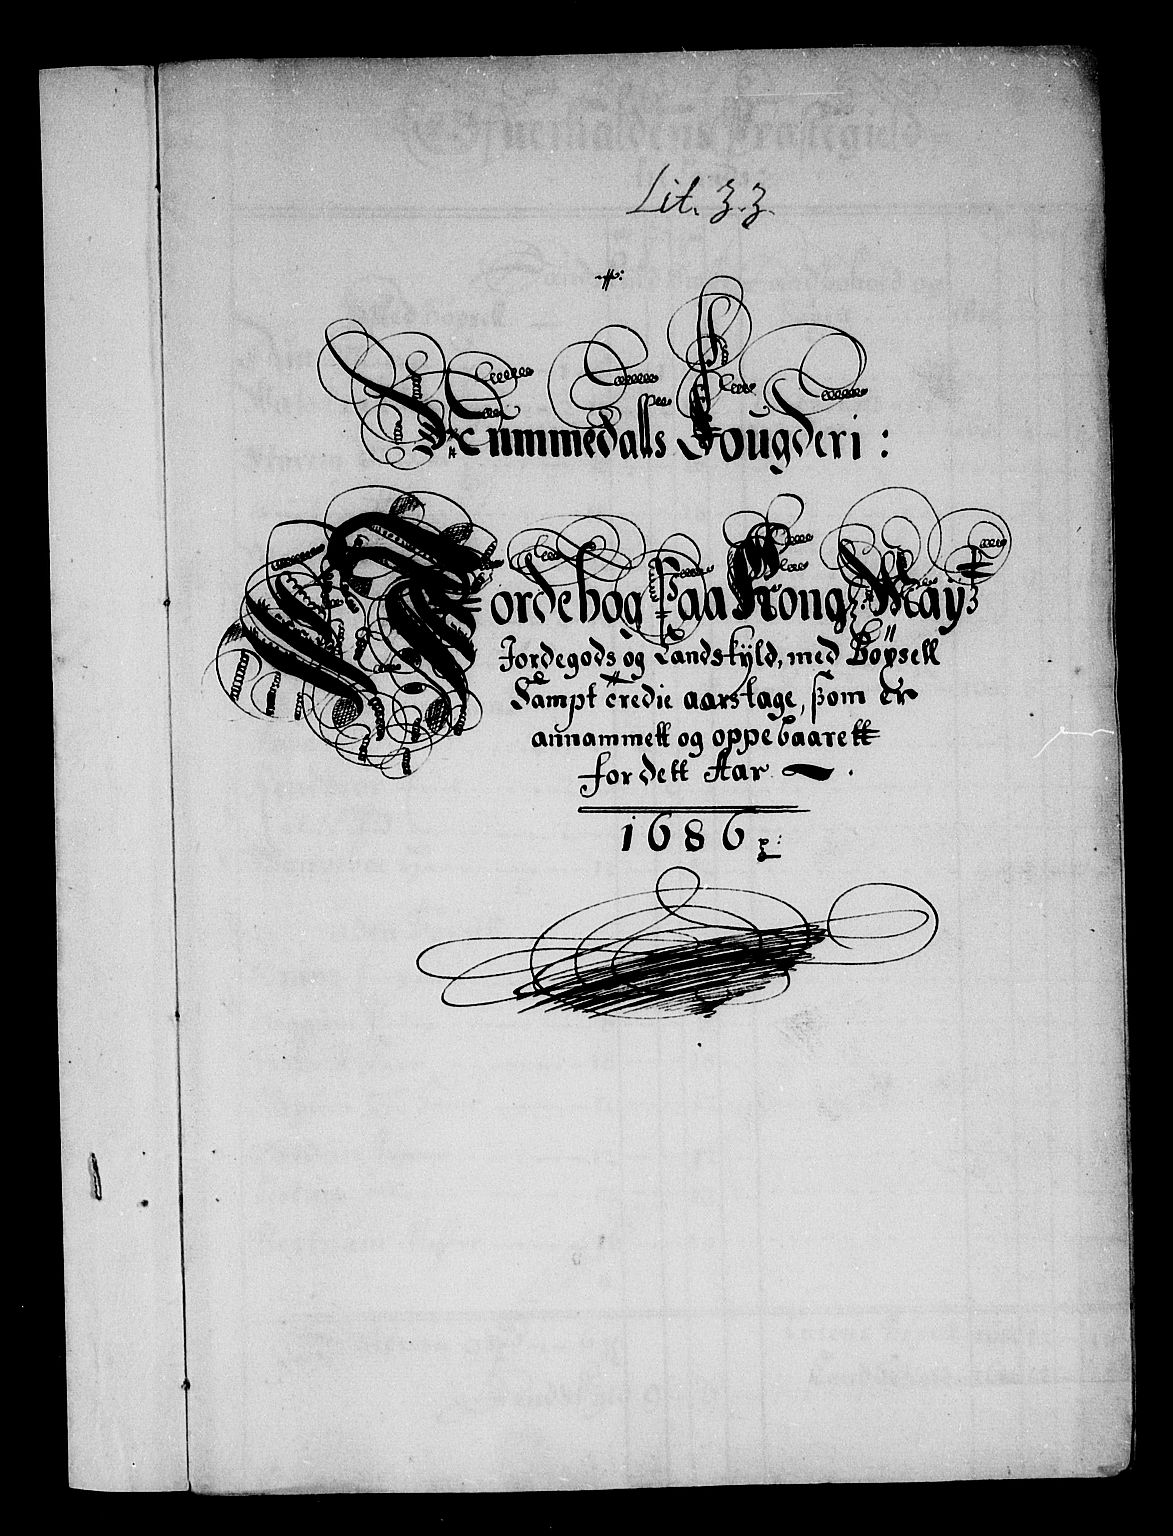 Lit. Z.Z.
Nummedals Fougderi:
Jordebog Paa Kong: Maÿ:
Jordegods og Landskÿld, med Böxsell
Sampt tredie aars tage, som er
annammett og oppebaarett
for dett Aar
1686